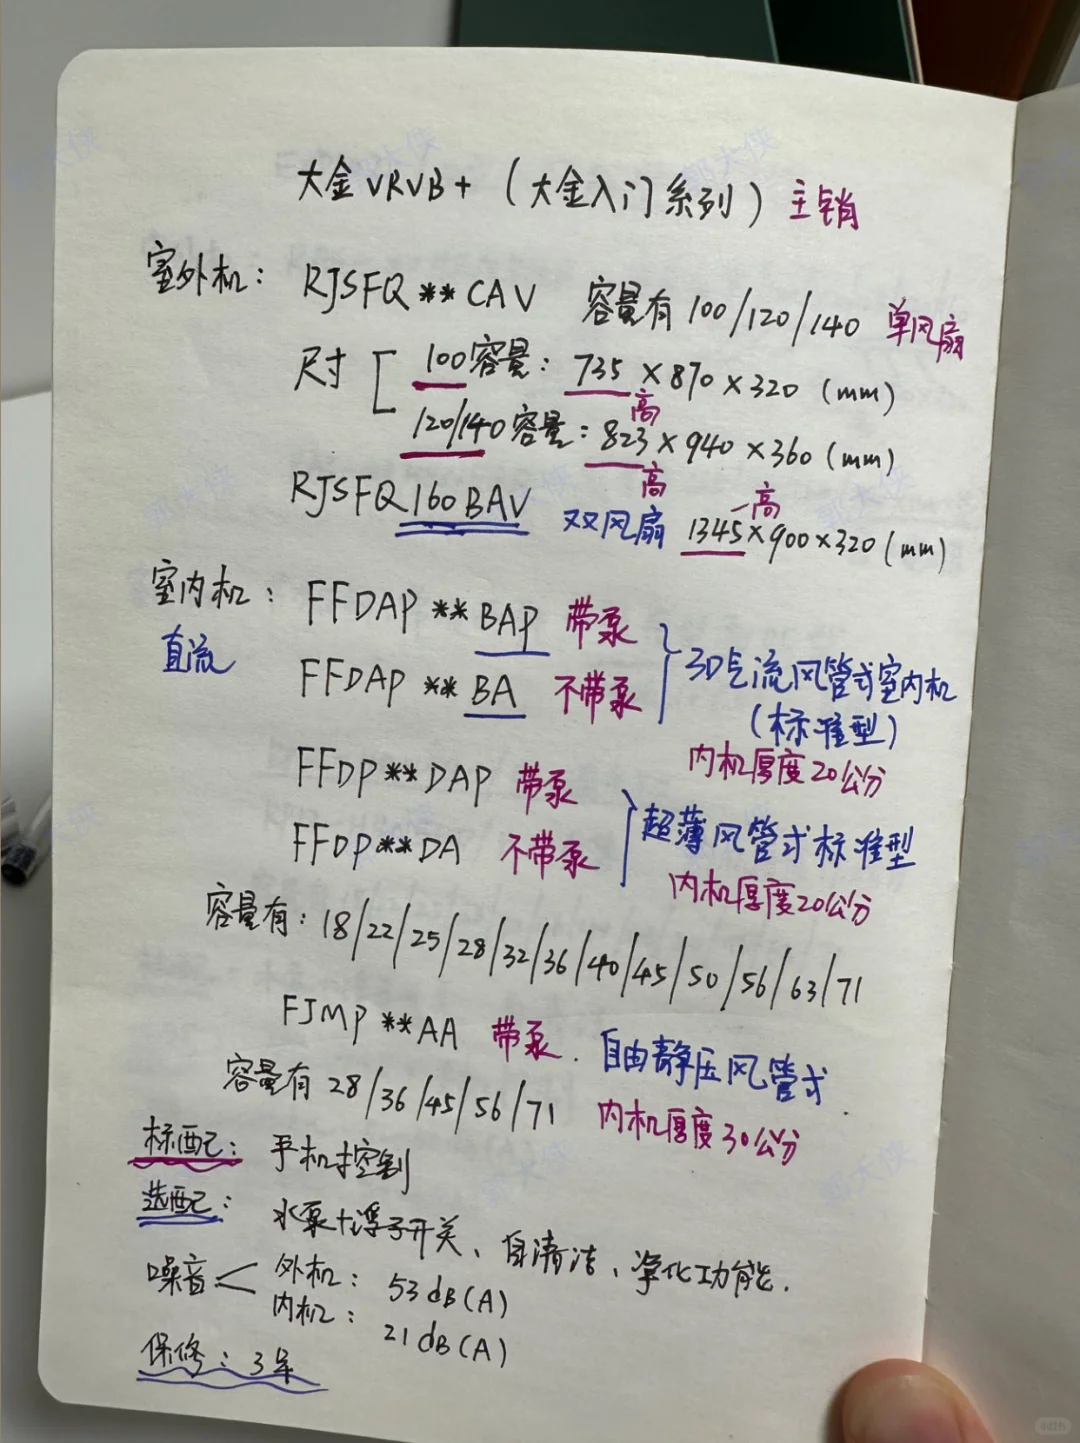 大金VRVB+（大金入门系列）主销
室外机：RJSFQ**CAV 容量有100/120/140 单风扇
尺寸 100容量：735×870×320（mm）
高
120/140容量：823×940×360（mm）
高
RJSFQ160BAV 双风扇 1345×900×320（mm）
高
室内机：FFDAP**BAP 带泵
直流
FFDAP**BA 不带泵
3D气流风管式室内机
（标准型）
内机厚度20公分
FFDP**DAP 带泵
FFDP**DA 不带泵
超薄风管式标准型
内机厚度20公分
容量有：18/22/25/28/32/36/40/45/50/56/63/71
FJMP**AA 带泵. 自由静压风管式
容量有28/36/45/56/71 内机厚度30公分
标配：手机控制
选配：水泵+浮子开关、自清洁、净化功能.
噪音 外机：53dB(A)
内机：21dB(A)
保修：3年
郭大侠
郭大侠
郭大侠
郭大侠
小红书